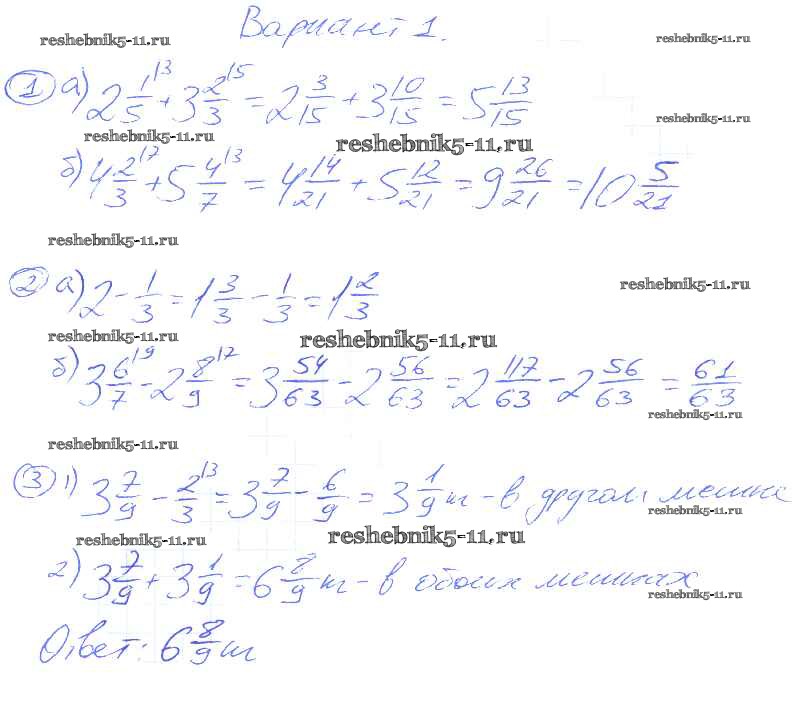 Вариант 1.
reshebnik5-11.ru reshebnik5-11.ru
① а) 2 1/5 |3 + 3 2/3 |5 = 2 3/15 + 3 10/15 = 5 13/15
reshebnik5-11.ru
reshebnik5-11.ru reshebnik5-11.ru
б) 4 2/3 |7 + 5 4/7 |3 = 4 14/21 + 5 12/21 = 9 26/21 = 10 5/21
reshebnik5-11.ru
② а) 2 - 1/3 = 1 3/3 - 1/3 = 1 2/3
reshebnik5-11.ru
reshebnik5-11.ru reshebnik5-11.ru
б) 3 6/7 |9 - 2 8/9 |7 = 3 54/63 - 2 56/63 = 2 117/63 - 2 56/63 = 61/63
reshebnik5-11.ru
reshebnik5-11.ru
③ 1) 3 7/9 - 2/3 |3 = 3 7/9 - 6/9 = 3 1/9 т - в другом мешке
reshebnik5-11.ru
reshebnik5-11.ru reshebnik5-11.ru
2) 3 7/9 + 3 1/9 = 6 8/9 т - в обоих мешках
reshebnik5-11.ru
Ответ: 6 8/9 т